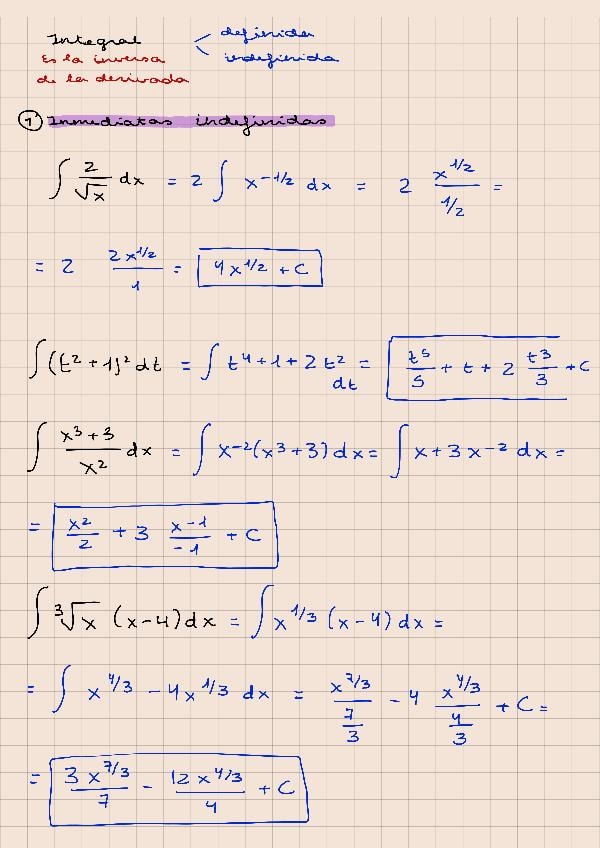 Integral < definida
indefinida
Es la inversa
de la derivada
① Inmediatas indefinidas
∫ 2/√x dx = 2 ∫ x^{-1/2} dx = 2 x^{1/2}/(1/2) =
= 2 2x^{1/2}/1 = 4x^{1/2} + C
∫(t² + 1)² dt = ∫ t⁴ + 1 + 2t² dt = t⁵/5 + t + 2 t³/3 + C
∫ (x³ + 3)/x² dx = ∫ x^{-2}(x³ + 3) dx = ∫ x + 3x^{-2} dx =
= x²/2 + 3 x^{-1}/-1 + C
∫ ³√x (x - 4) dx = ∫ x^{1/3} (x - 4) dx =
= ∫ x^{4/3} - 4x^{1/3} dx = x^{7/3}/(7/3) - 4 x^{4/3}/(4/3) + C =
= 3x^{7/3}/7 - 12x^{4/3}/4 + C